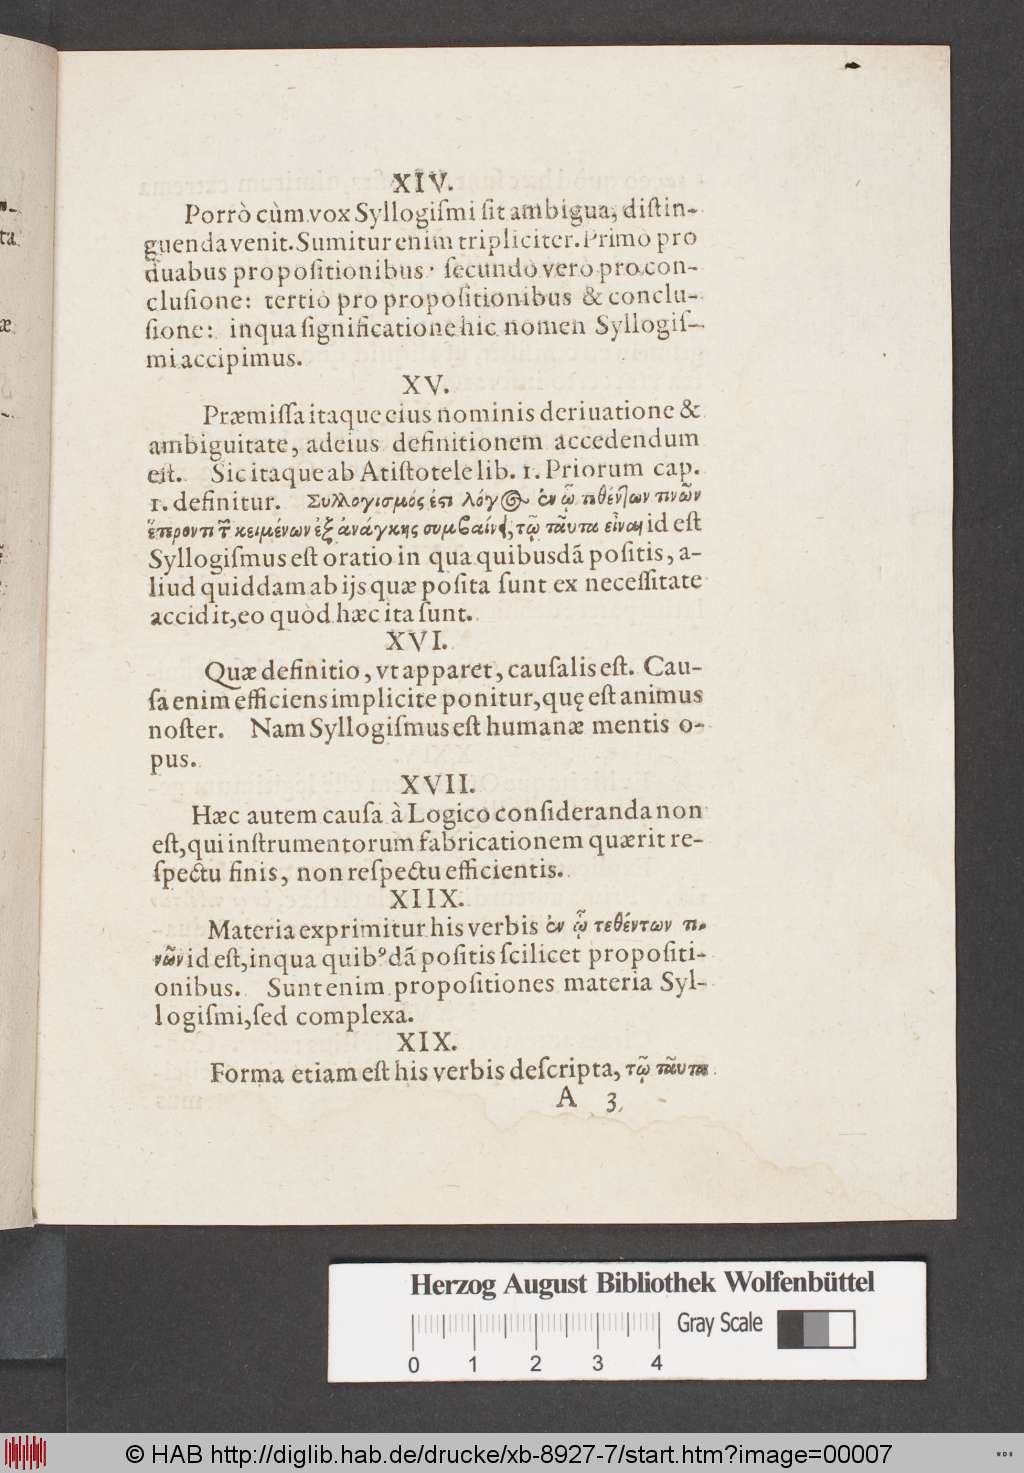 XIV.
Porrò cùm vox Syllogiſmi ſit ambigua, diſtin-
guenda venit. Sumitur enim tripliciter. Primo pro
duabus propoſitionibus: ſecundo verò pro con-
cluſione: tertiò pro propoſitionibus & conclu-
ſione: in qua ſignificatione hic nomen Syllogiſ-
mi accipimus.
XV.
Præmiſſa itaque eius nominis deriuatione &
ambiguitate, ad eius definitionem accedendum
eſt. Sic itaque ab Atiſtotele lib. 1. Priorum cap.
1. definitur. Συλλογισμός ἐςι λόγος ἐν ᾧ τιθέντων τινῶν
ἕτερον τι τ͂ κειμένων ἐξ ἀνάγκης συμβαίνει, τῷ ταῦτα εἶναι id eſt
Syllogiſmus eſt oratio in qua quibusdã poſitis, a-
liud quiddam ab ijs quæ poſita ſunt ex neceſſitate
accidit, eo quòd hæc ita ſunt.
XVI.
Quæ definitio, vt apparet, cauſalis eſt. Cau-
ſa enim efficiens implicite ponitur, quę eſt animus
noſter. Nam Syllogiſmus eſt humanæ mentis o-
pus.
XVII.
Hæc autem cauſa à Logico conſideranda non
eſt, qui inſtrumentorum fabricationem quærit re-
ſpectu finis, non reſpectu efficientis.
XIIX.
Materia exprimitur his verbis ἐν ᾧ τεθέντων τι-
νῶν id eſt, in qua quibꝰdã poſitis ſcilicet propoſiti-
onibus. Sunt enim propoſitiones materia Syl-
logiſmi, ſed complexa.
XIX.
Forma etiam eſt his verbis deſcripta, τῷ ταῦτα
A 3
ta
æ
Herzog August Bibliothek Wolfenbüttel
Gray Scale
0 1 2 3 4
© HAB http://diglib.hab.de/drucke/xb-8927-7/start.htm?image=00007